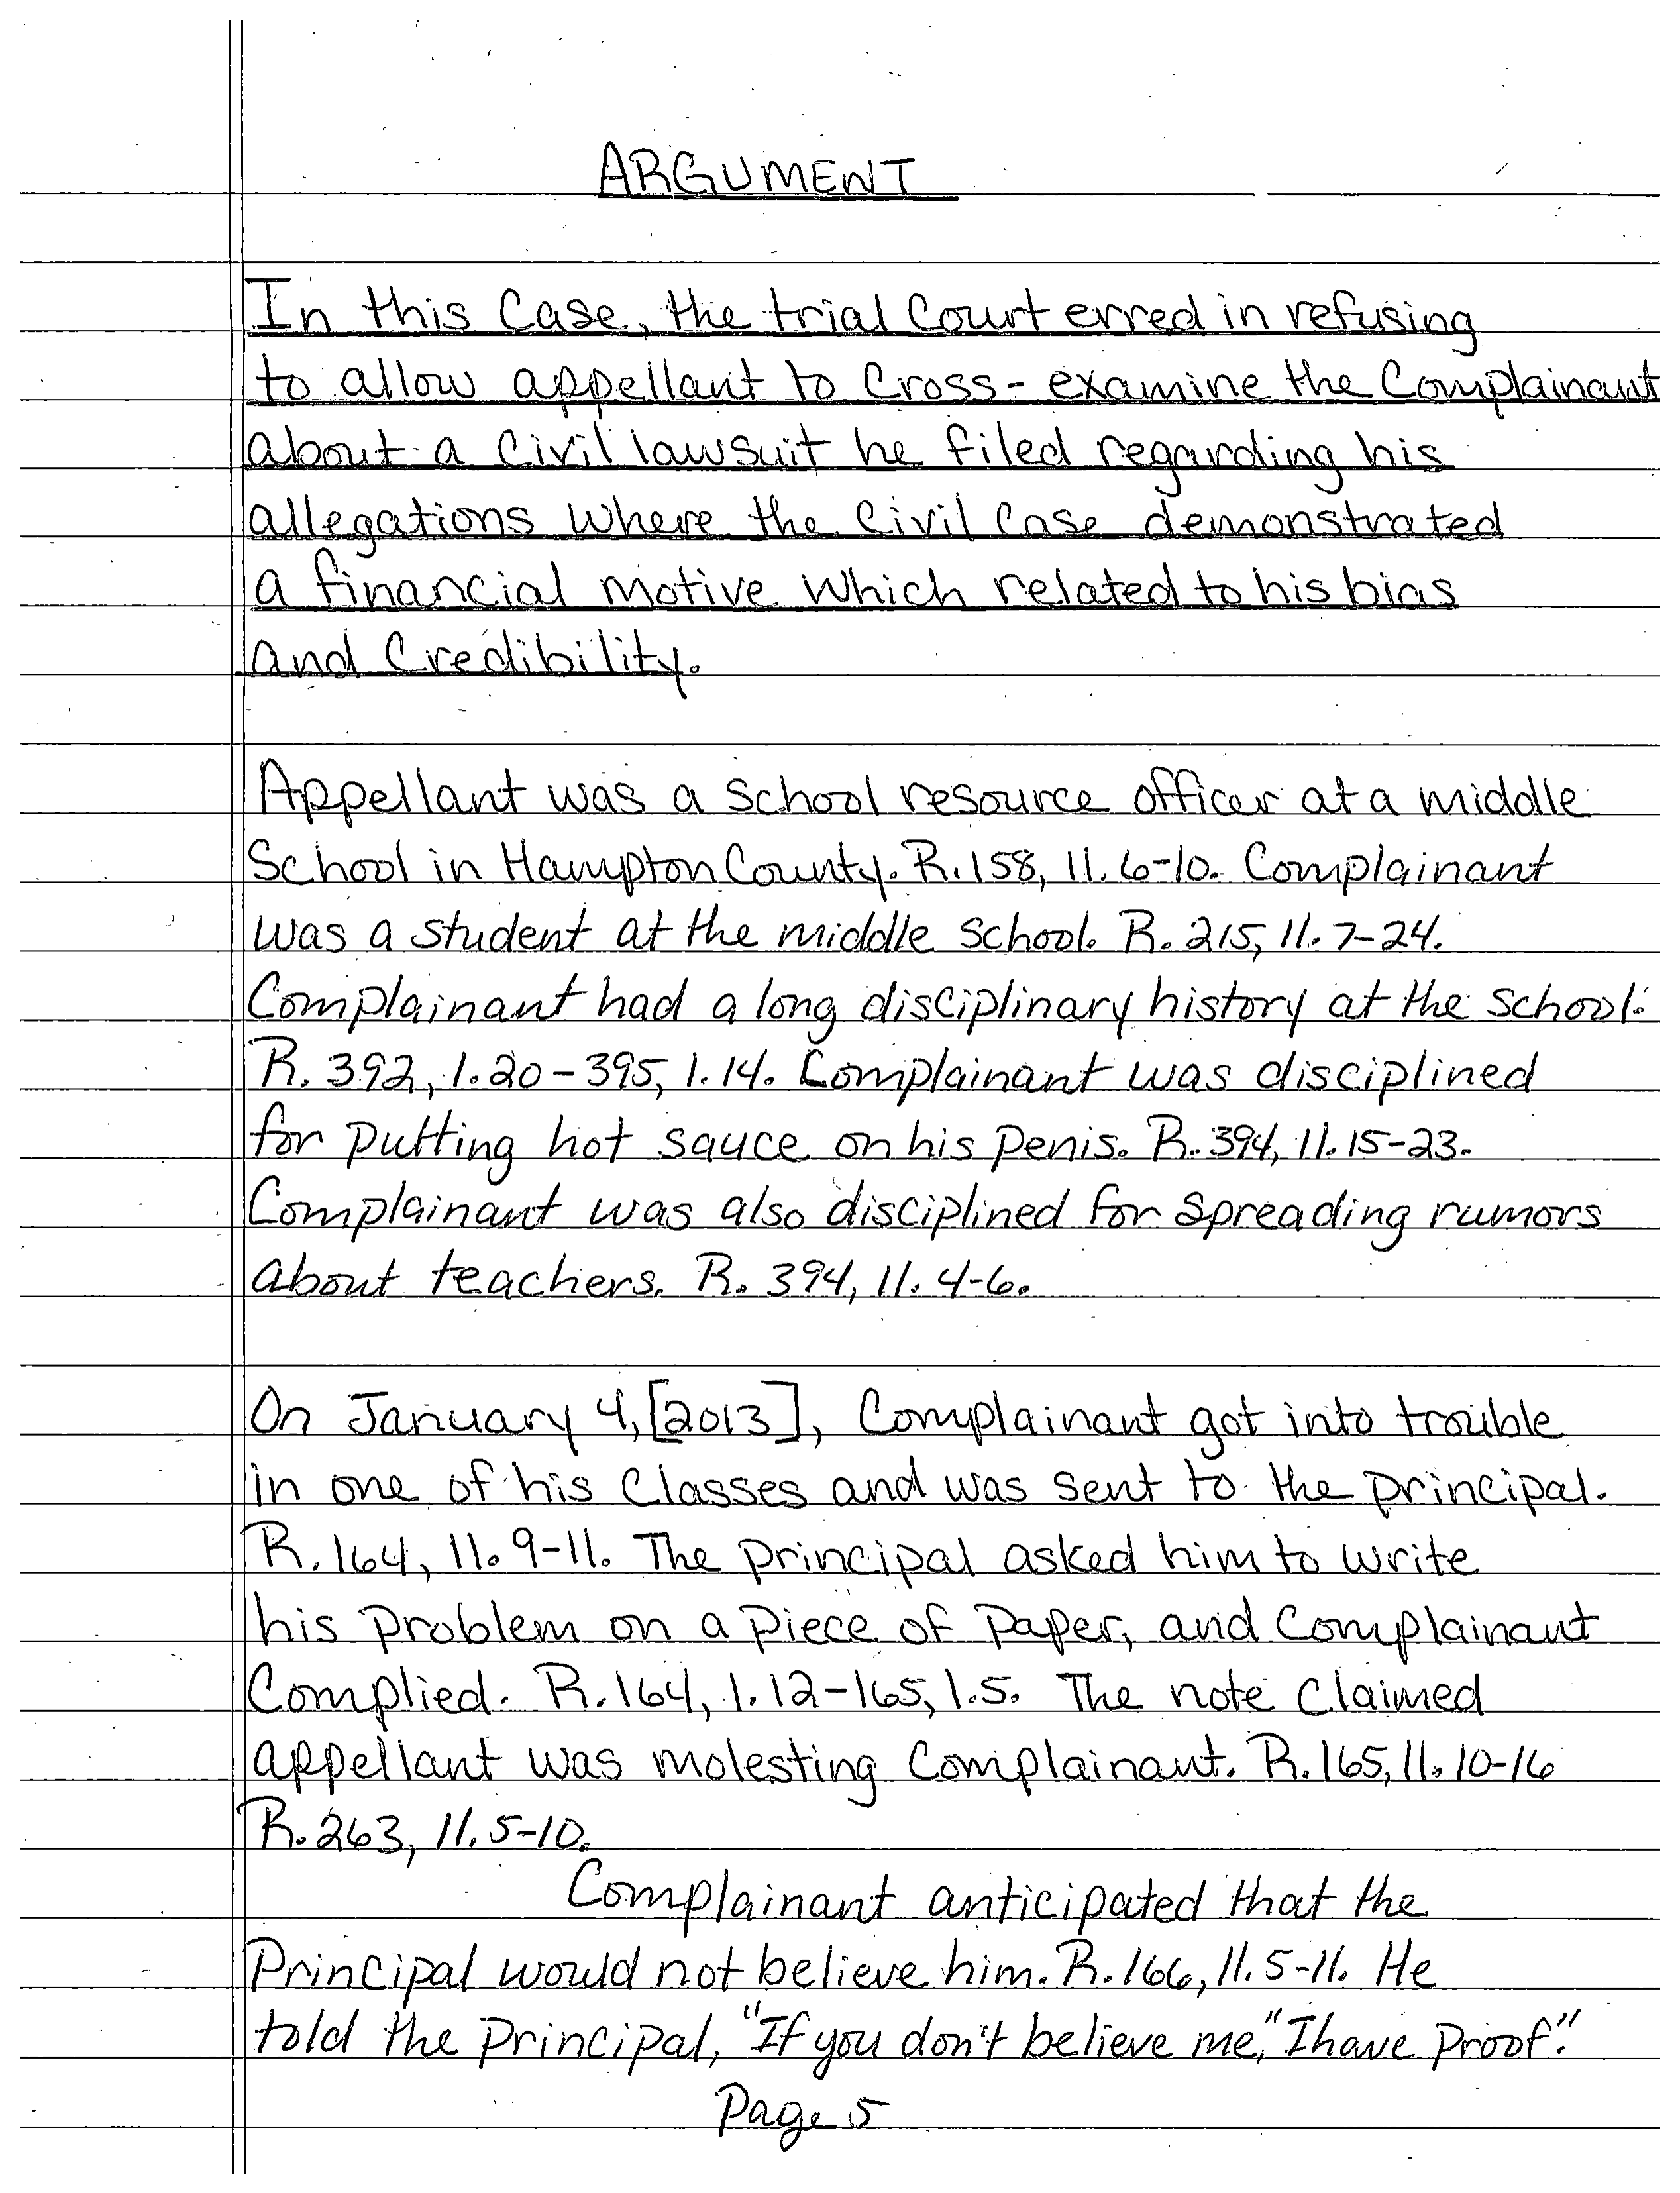 ARGUMENT
In this Case, the trial Court erred in refusing
to allow appellant to Cross-examine the Complainant
about a Civil lawsuit he filed regarding his
allegations where the Civil Case demonstrated
a financial motive which related to his bias
and Credibility.
Appellant was a School resource officer at a middle
School in Hampton County. R.158, ll. 6-10. Complainant
was a student at the middle School. R. 215, ll. 7-24.
Complainant had a long disciplinary history at the School.
R. 392, l. 20-395, l. 14. Complainant was disciplined
for putting hot sauce on his penis. R. 394, ll. 15-23.
Complainant was also disciplined for spreading rumors
about teachers. R. 394, ll. 4-6.
On January 4, [2013], Complainant got into trouble
in one of his Classes and was sent to the principal.
R. 164, ll. 9-11. The principal asked him to write
his problem on a piece of paper, and Complainant
Complied. R. 164, l. 12-165, l. 5. The note Claimed
appellant was molesting Complainant. R. 165, ll. 10-16
R. 263, ll. 5-10.
Complainant anticipated that the
Principal would not believe him. R. 166, ll. 5-11. He
told the principal, "If you don't believe me," I have proof."
Page 5